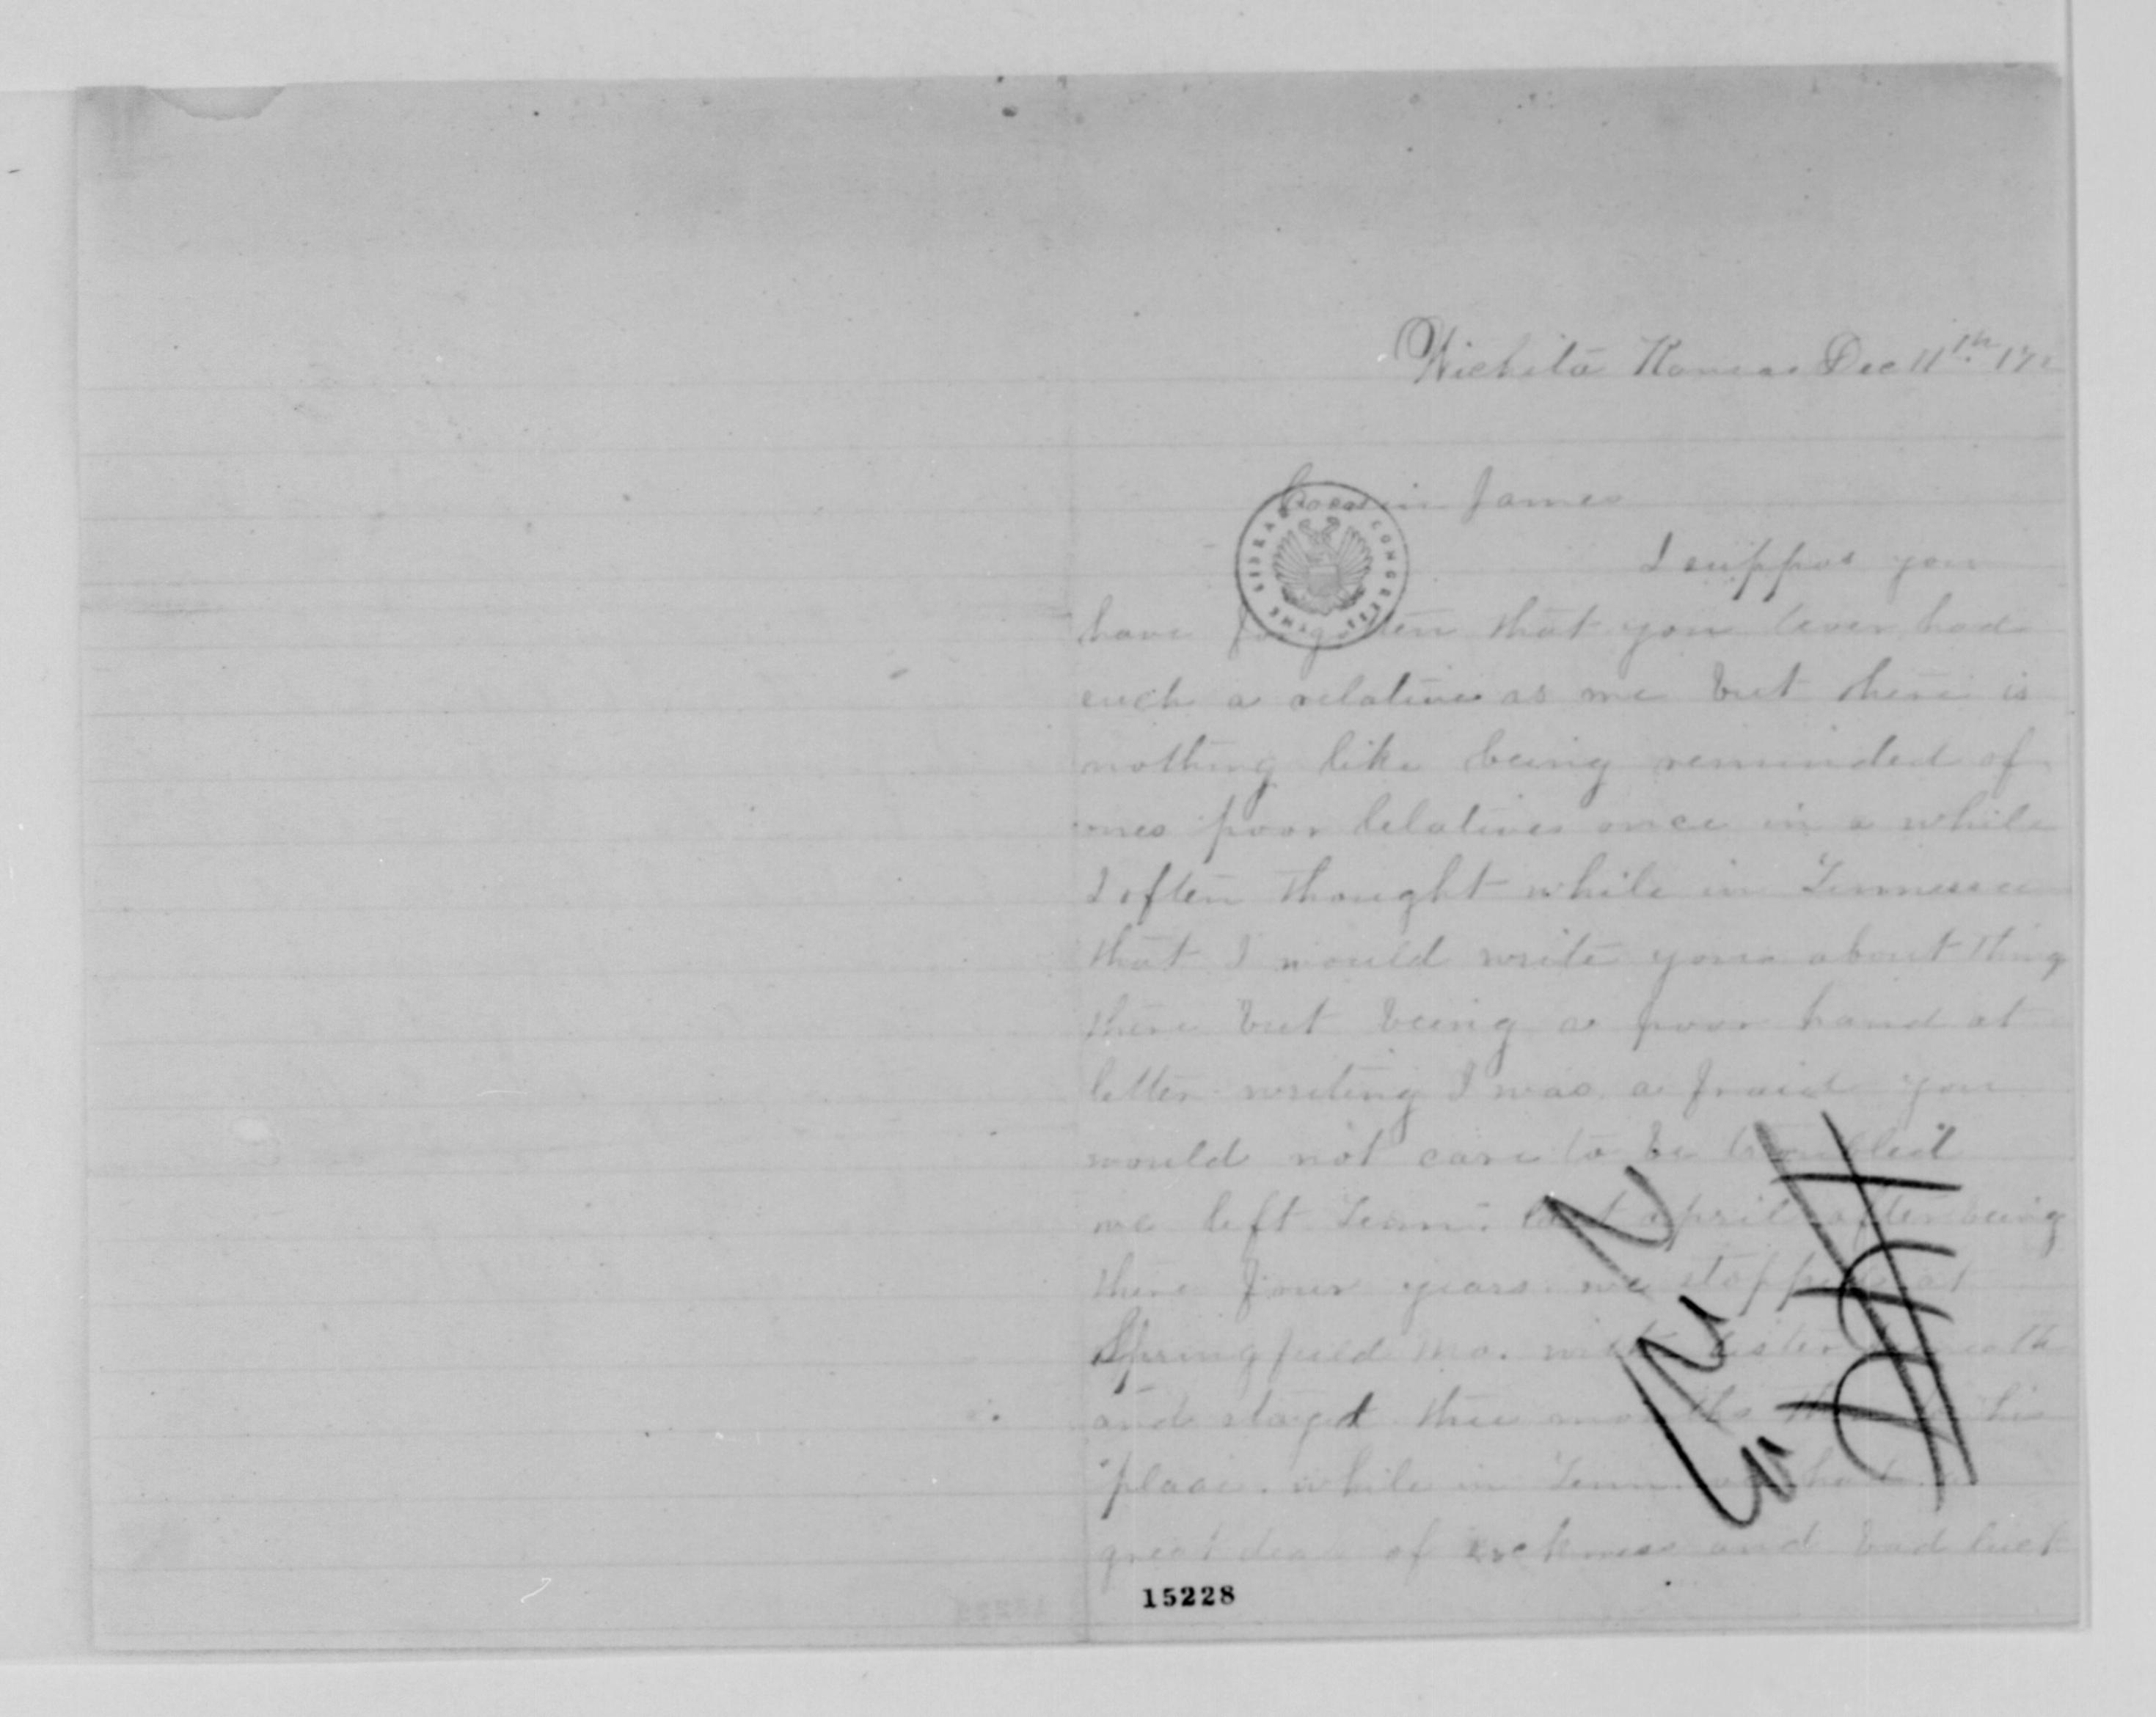 Wichita Kansas Dec 11th 187
Cousin James
I suppos you
have forgotten that you ever had
such a relative as me but there is
nothing like being reminded of
ones poor relatives once in a while
I often thought while in Tennessee
that I would write you about thing
there but being a poor hand at
letter writing I was a fraid you
would not care to be troubled
we left Tenn. last april after being
there four years. we stopped at
Springfield Mo. with sister
and stayed three months then
place. while in Tenn we had a
great deal of sickness and bad luck
15228